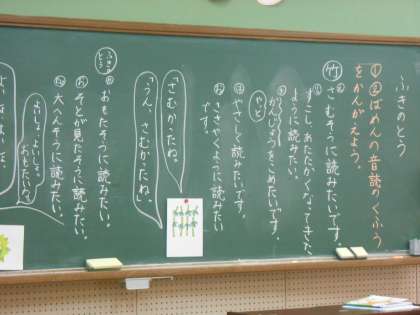 ふきのとう
①②ばめんの音読のくふう
をかんがえよう。
竹
さむそうに読みたいです。
すこし、あたたかくなってきた
ように読みたい。
かんじょうをこめたいです。
やっと
は
やさしく読みたいです。
ささやくように読みたい
です。
「さむかったね。」
「うん、さむかったね。」
ふきのとう
おもたそうに読みたい。
そとが見たそうに読みたい。
大へんそうに読みたい。
よいしょ、よいしょ。
おもたいな。